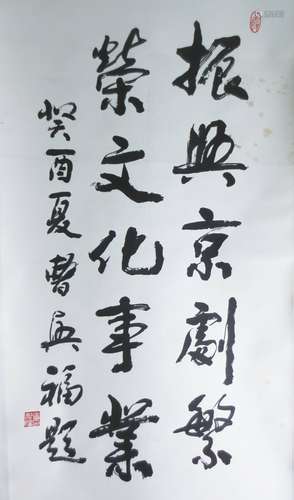 振興京劇繁
榮文化事業
癸酉夏曹興福題